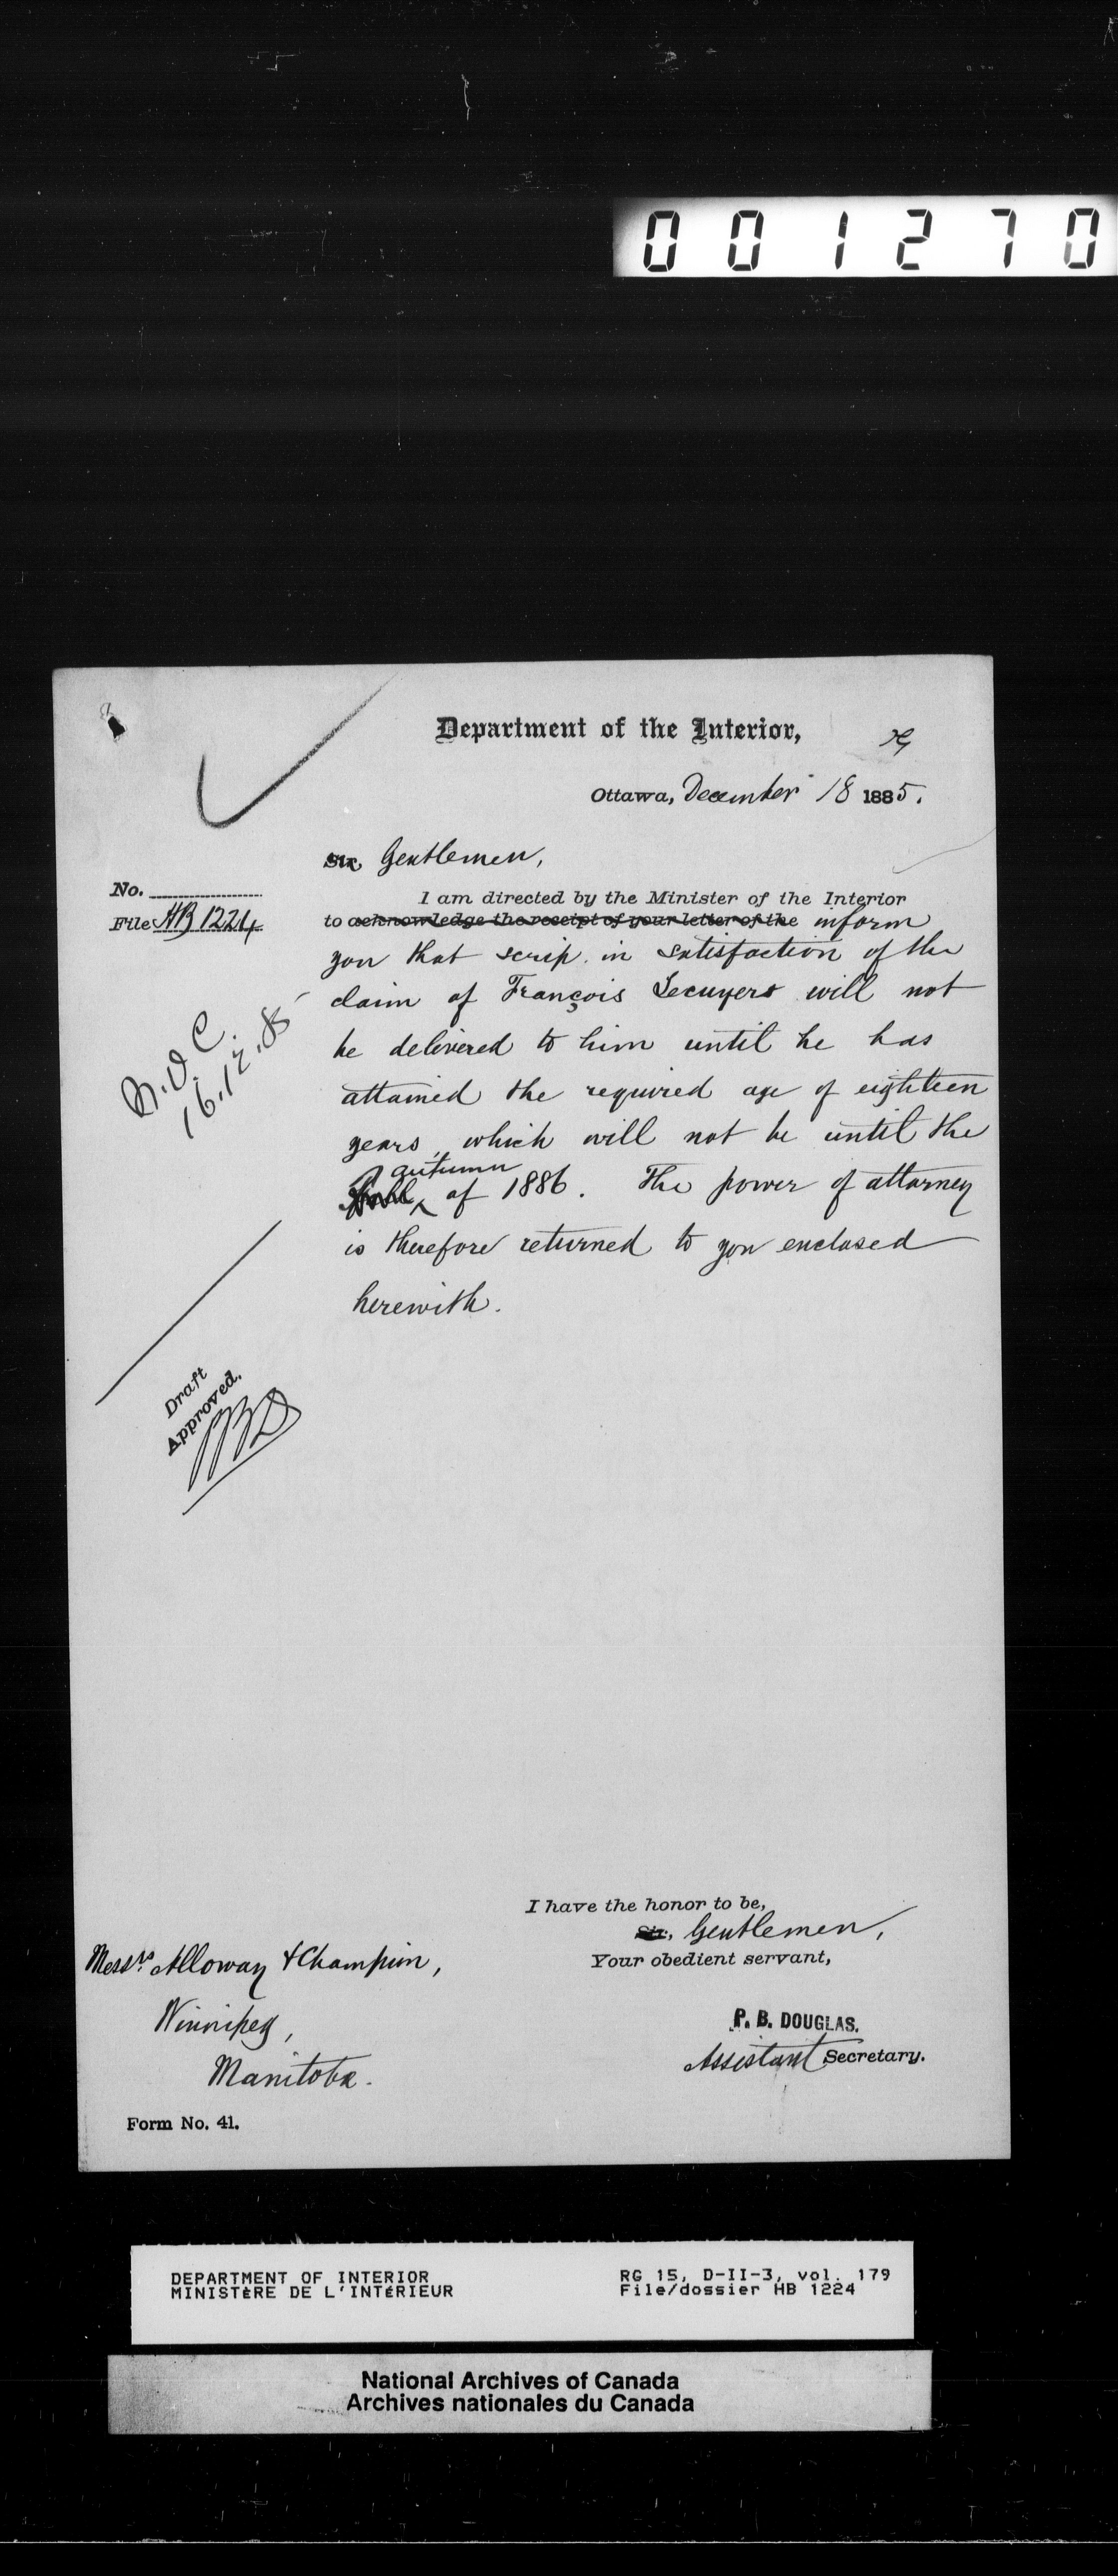 001270
Department of the Interior,
Ottawa, December 18 1885.
Sir Gentlemen,
No.
File HB 1224
I am directed by the Minister of the Interior
to acknowledge the receipt of your letter of the inform
you that scrip in satisfaction of the
claim of François Lecuyer will not
be delivered to him until he has
attained the required age of eighteen
years, which will not be until the
autumn
of 1886. The power of attorney
is therefore returned to you enclosed
herewith.
16.12.85
Draft
Approved.
I have the honor to be,
Sir, Gentlemen,
Your obedient servant,
P. B. DOUGLAS.
Assistant Secretary.
Messrs. Alloway & Champion,
Winnipeg,
Manitoba.
Form No. 41.
DEPARTMENT OF INTERIOR
MINISTÈRE DE L'INTÉRIEUR
RG 15, D-II-3, vol. 179
File/dossier HB 1224
National Archives of Canada
Archives nationales du Canada